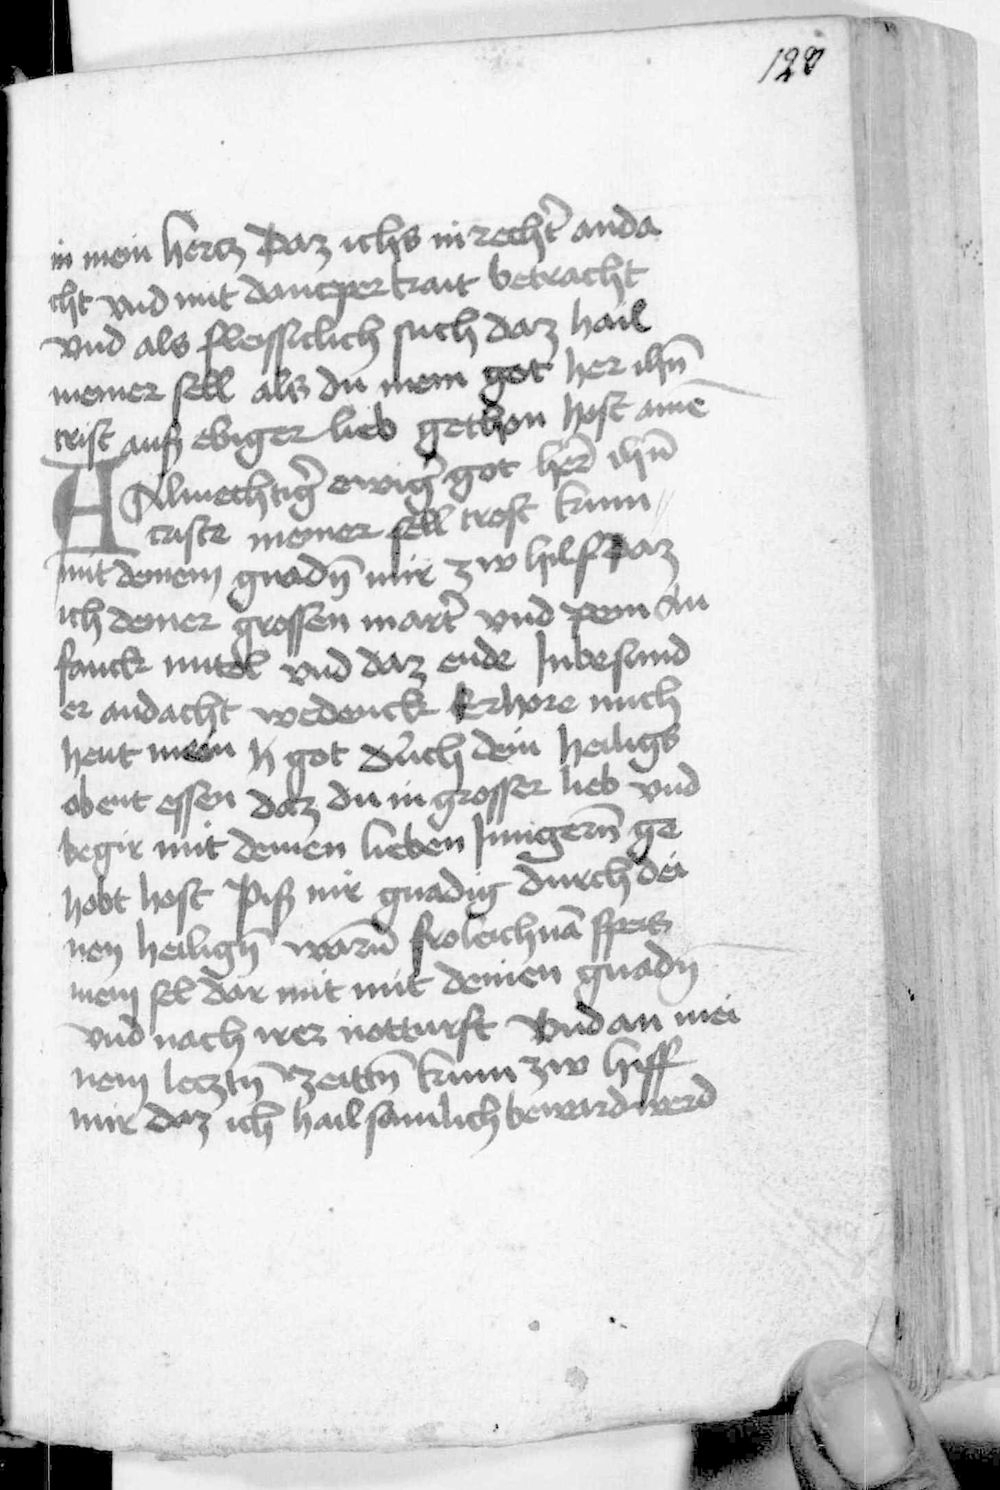 128
in mein hercz Daz ichs in recht̉ anda
cht vnd mit dancperkait betracht
vnd als fleissiclich such daz hail
meiner sell als du mein got her ihū
crist auß ebiger lieb gethon host amē
Almechtig̉ ewig̉ got her̉ ihū
criste meiner sell trost kum
mit deinem gnadn̄ mir zw hilf Daz
ich deiner grossen mart̉ vnd pein An
fanck mitel vnd daz ende Inbesund
er andacht wedenck Erhore mich
heut mein h̉ got durch dein heiligs
obent essen daz du in grosser lieb vnd
begir mit deinen lieben Jungern̄ ge
hobt host Piß mir gnadig durch dei
nen heilign̄ warn̄ froleichnā speis
mein sel dar mit mit deinen gnadn̄
vnd nach irer notturft Vnd an mei
nem lecztn̄ zeittn̄ kum zw hilff
mir daz ich hailsamlich bewardt werd